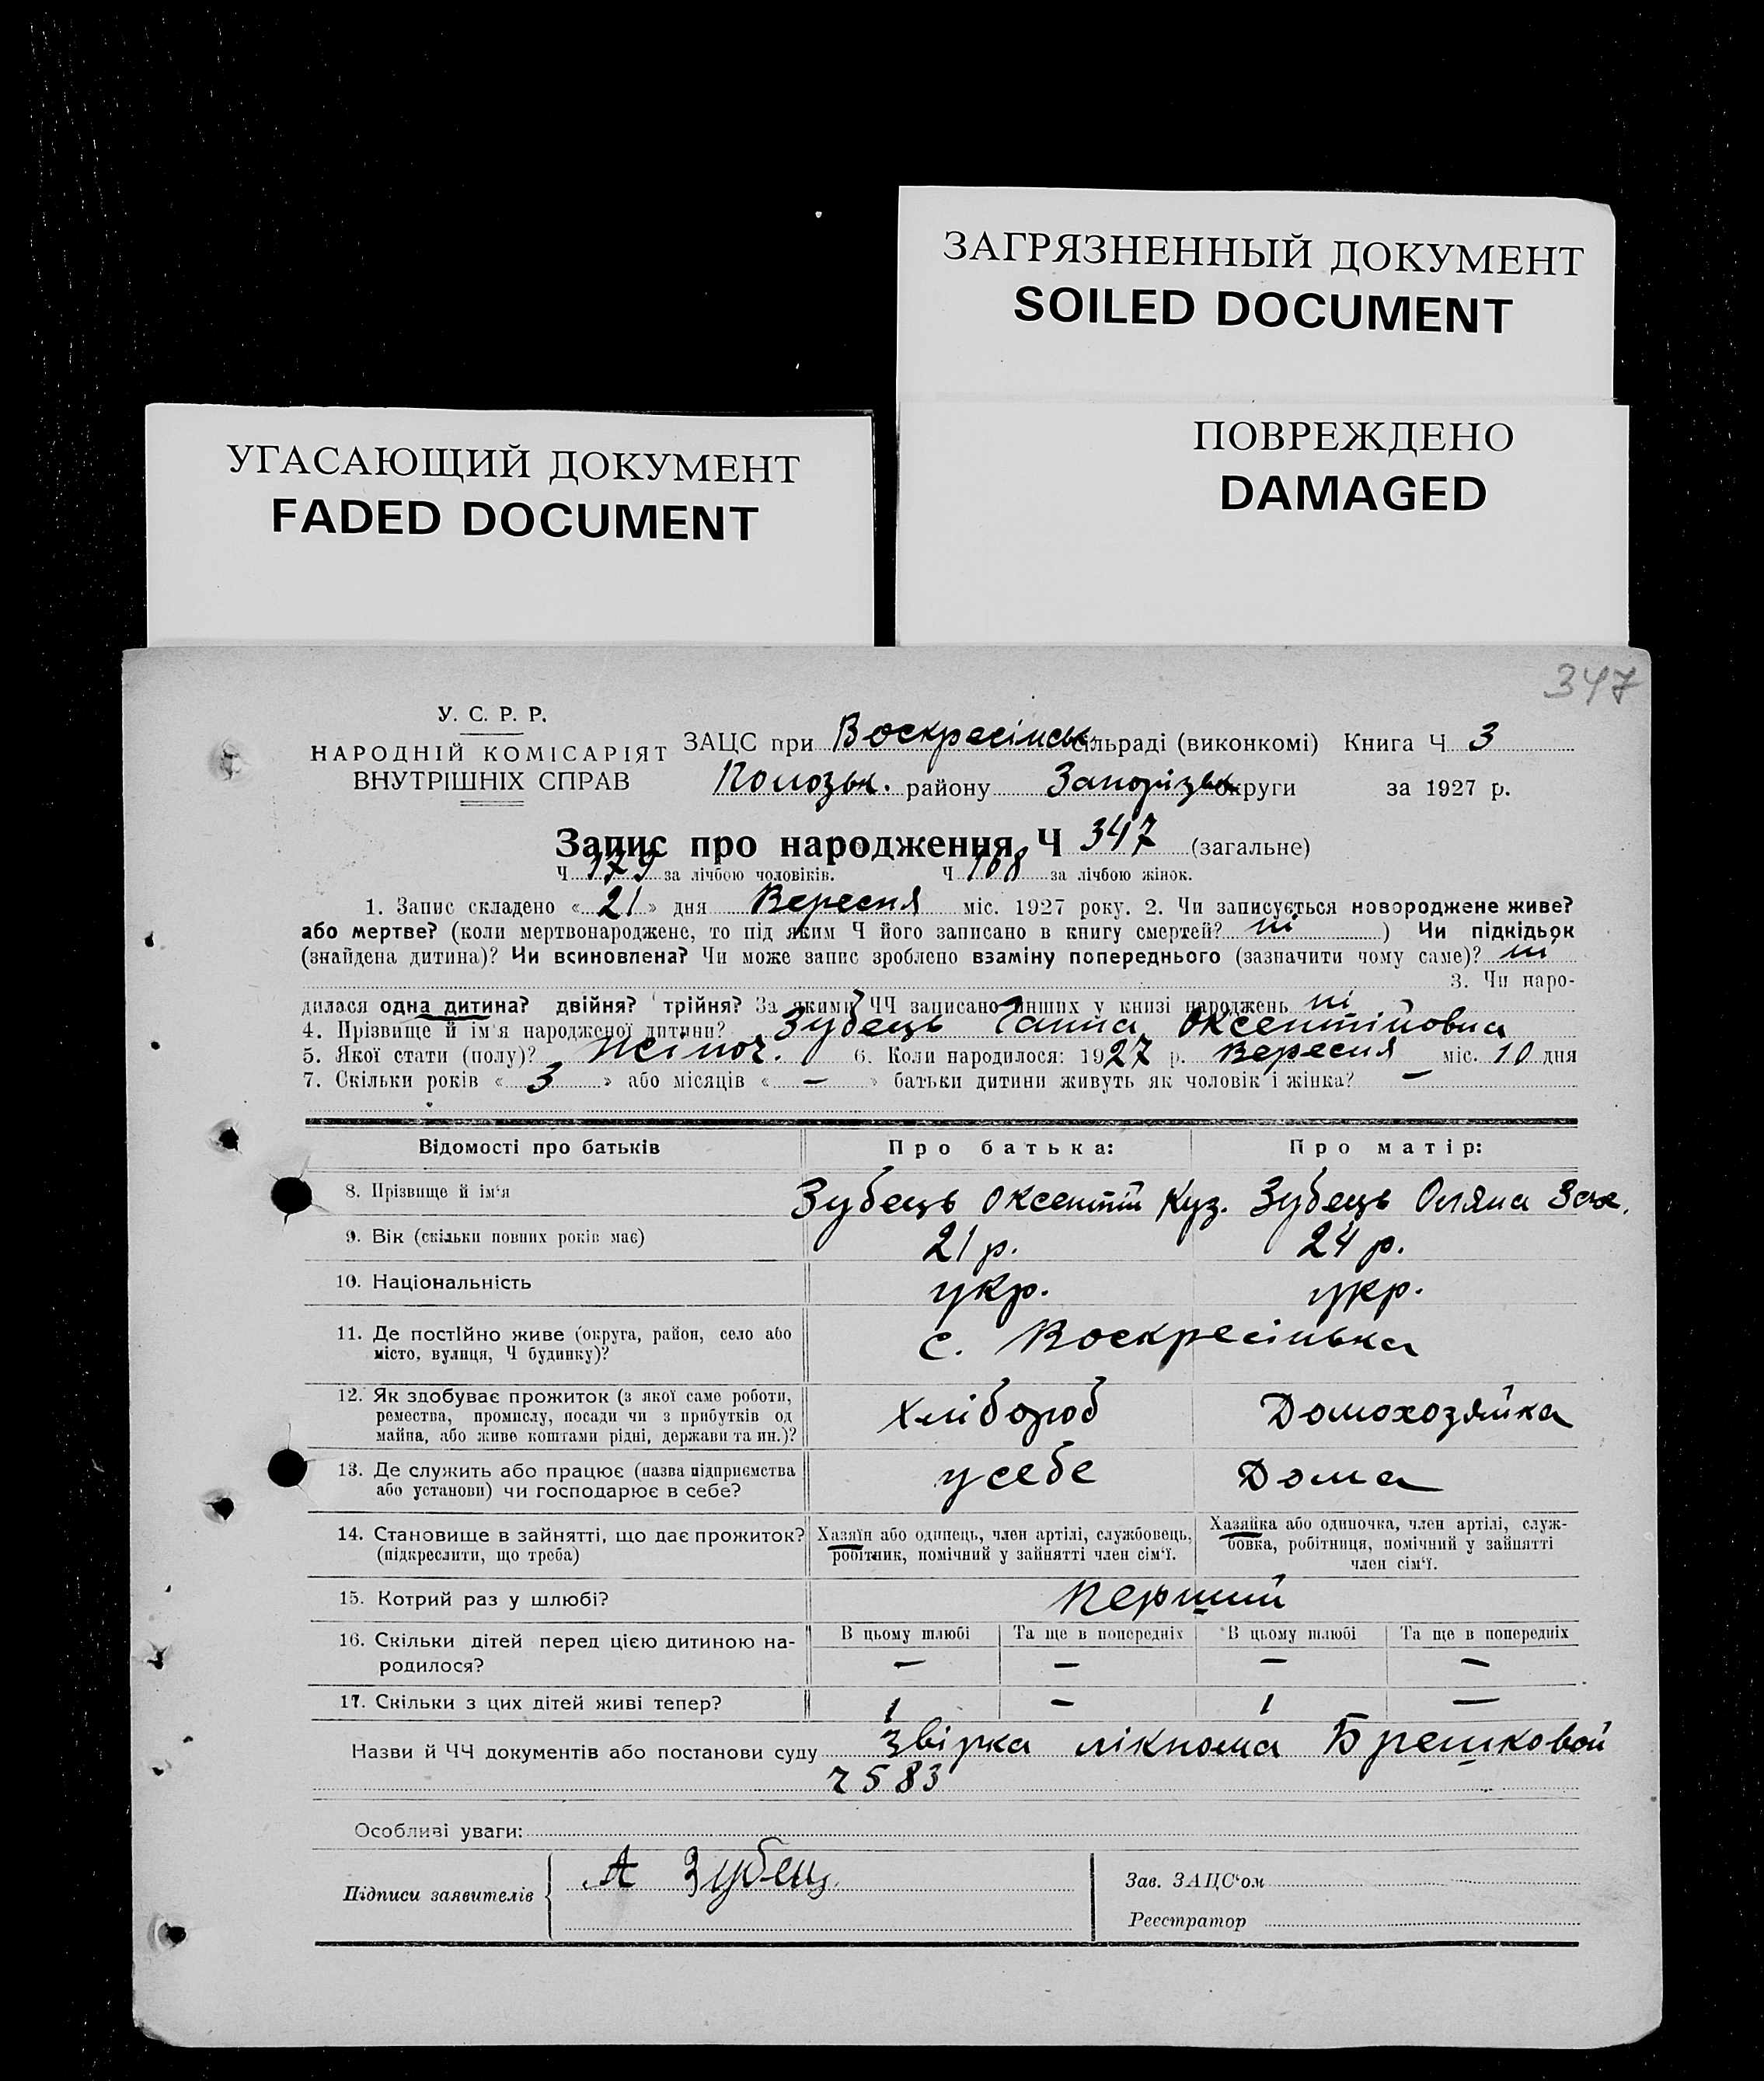 ЗАГРЯЗНЕННЫЙ ДОКУМЕНТ
SOILED DOCUMENT
ПОВРЕЖДЕНО
DAMAGED
УГАСАЮЩИЙ ДОКУМЕНТ
FADED DOCUMENT
347
У. С. Р. Р.
НАРОДНІЙ КОМІСАРІЯТ
ВНУТРІШНІХ СПРАВ
ЗАЦС при Воскресінськ. сільраді (виконкомі) Книга Ч 3
Полозьк. району Запорізьк. округи за 1927 р.
Запис про народження Ч 347 (загальне)
Ч 179 за лічбою чоловіків. Ч 168 за лічбою жінок.
1. Запис складено «21» дня Вересня міс. 1927 року. 2. Чи записується новороджене живе?
або мертве? (коли мертвонароджене, то під яким Ч його записано в книгу смертей? ні ) Чи підкідьок
(знайдена дитина)? Чи всиновлена? Чи може запис зроблено взаміну попереднього (зазначити чому саме)? ні
3. Чи наро-
дилася одна дитина? двійня? трійня? За якими ЧЧ записано инших у книзі народжень ні
4. Прізвище й ім'я народженої дитини? Зубець Ганна Оксентійовна
5. Якої стати (полу)? жіноч. 6. Коли народилося: 1927 р. Вересня міс. 10 дня
7. Скільки років «3» або місяців «—» батьки дитини живуть як чоловік і жінка? —
Відомості про батьків Про батька: Про матір:
8. Прізвище й ім'я Зубець Оксентій Куз. Зубець Оляна
9. Вік (скільки повних років має) 21 р. 24 р.
10. Національність укр. укр.
11. Де постійно живе (округа, район, село або
місто, вулиця, Ч будинку)? с. Воскресінька
12. Як здобуває прожиток (з якої саме роботи,
ремества, промислу, посади чи з прибутків од
майна, або живе коштами рідні, держави та ин.)? Хлібороб Домохозяйка
13. Де служить або працює (назва підприємства
або установи) чи господарює в себе? у себе Дома
14. Становище в зайнятті, що дає прожиток?
(підкреслити, що треба)
Хазяїн або одинець, член артілі, службовець,
робітник, помічний у зайнятті член сім'ї.
Хазяйка або одиночка, член артілі, служ-
бовка, робітниця, помічний у зайнятті
член сім'ї.
15. Котрий раз у шлюбі? перший
16. Скільки дітей перед цією дитиною на-
родилося?
В цьому шлюбі Та ще в попередніх В цьому шлюбі Та ще в попередніх
— — — —
17. Скільки з цих дітей живі тепер? 1 — 1 —
Назви й ЧЧ документів або постанови суду звірка лікпома Брешковой
2583
Особливі уваги:
Підписи заявителів А Зубець
Зав. ЗАЦС'ом
Реєстратор